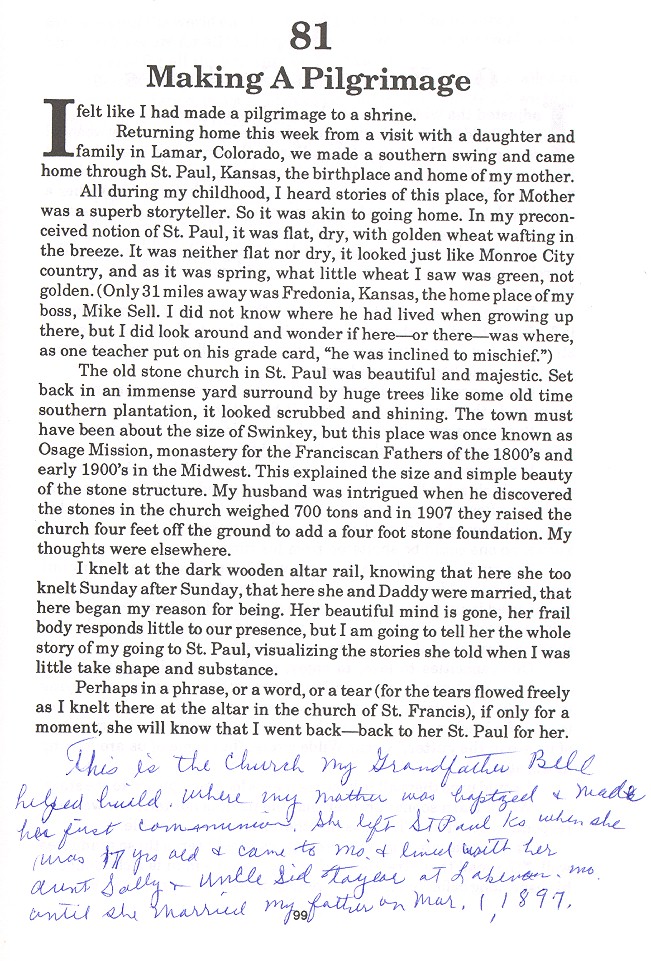 81
Making A Pilgrimage
I felt like I had made a pilgrimage to a shrine.
Returning home this week from a visit with a daughter and
family in Lamar, Colorado, we made a southern swing and came
home through St. Paul, Kansas, the birthplace and home of my mother.
All during my childhood, I heard stories of this place, for Mother
was a superb storyteller. So it was akin to going home. In my precon-
ceived notion of St. Paul, it was flat, dry, with golden wheat wafting in
the breeze. It was neither flat nor dry, it looked just like Monroe City
country, and as it was spring, what little wheat I saw was green, not
golden. (Only 31 miles away was Fredonia, Kansas, the home place of my
boss, Mike Sell. I did not know where he had lived when growing up
there, but I did look around and wonder if here—or there—was where,
as one teacher put on his grade card, “he was inclined to mischief.”)
The old stone church in St. Paul was beautiful and majestic. Set
back in an immense yard surround by huge trees like some old time
southern plantation, it looked scrubbed and shining. The town must
have been about the size of Swinkey, but this place was once known as
Osage Mission, monastery for the Franciscan Fathers of the 1800’s and
early 1900’s in the Midwest. This explained the size and simple beauty
of the stone structure. My husband was intrigued when he discovered
the stones in the church weighed 700 tons and in 1907 they raised the
church four feet off the ground to add a four foot stone foundation. My
thoughts were elsewhere.
I knelt at the dark wooden altar rail, knowing that here she too
knelt Sunday after Sunday, that here she and Daddy were married, that
here began my reason for being. Her beautiful mind is gone, her frail
body responds little to our presence, but I am going to tell her the whole
story of my going to St. Paul, visualizing the stories she told when I was
little take shape and substance.
Perhaps in a phrase, or a word, or a tear (for the tears flowed freely
as I knelt there at the altar in the church of St. Francis), if only for a
moment, she will know that I went back—back to her St. Paul for her.
This is the Church my Grandfather Bell
helped build. where my mother was baptzed & made
her first communion. She left St Paul Ks when she
was 17 yrs old & came to Mo. & lived with her
aunt Sally & Uncle Sid at Lakenan. mo.
until she married my father on Mar. 1, 1897.
99